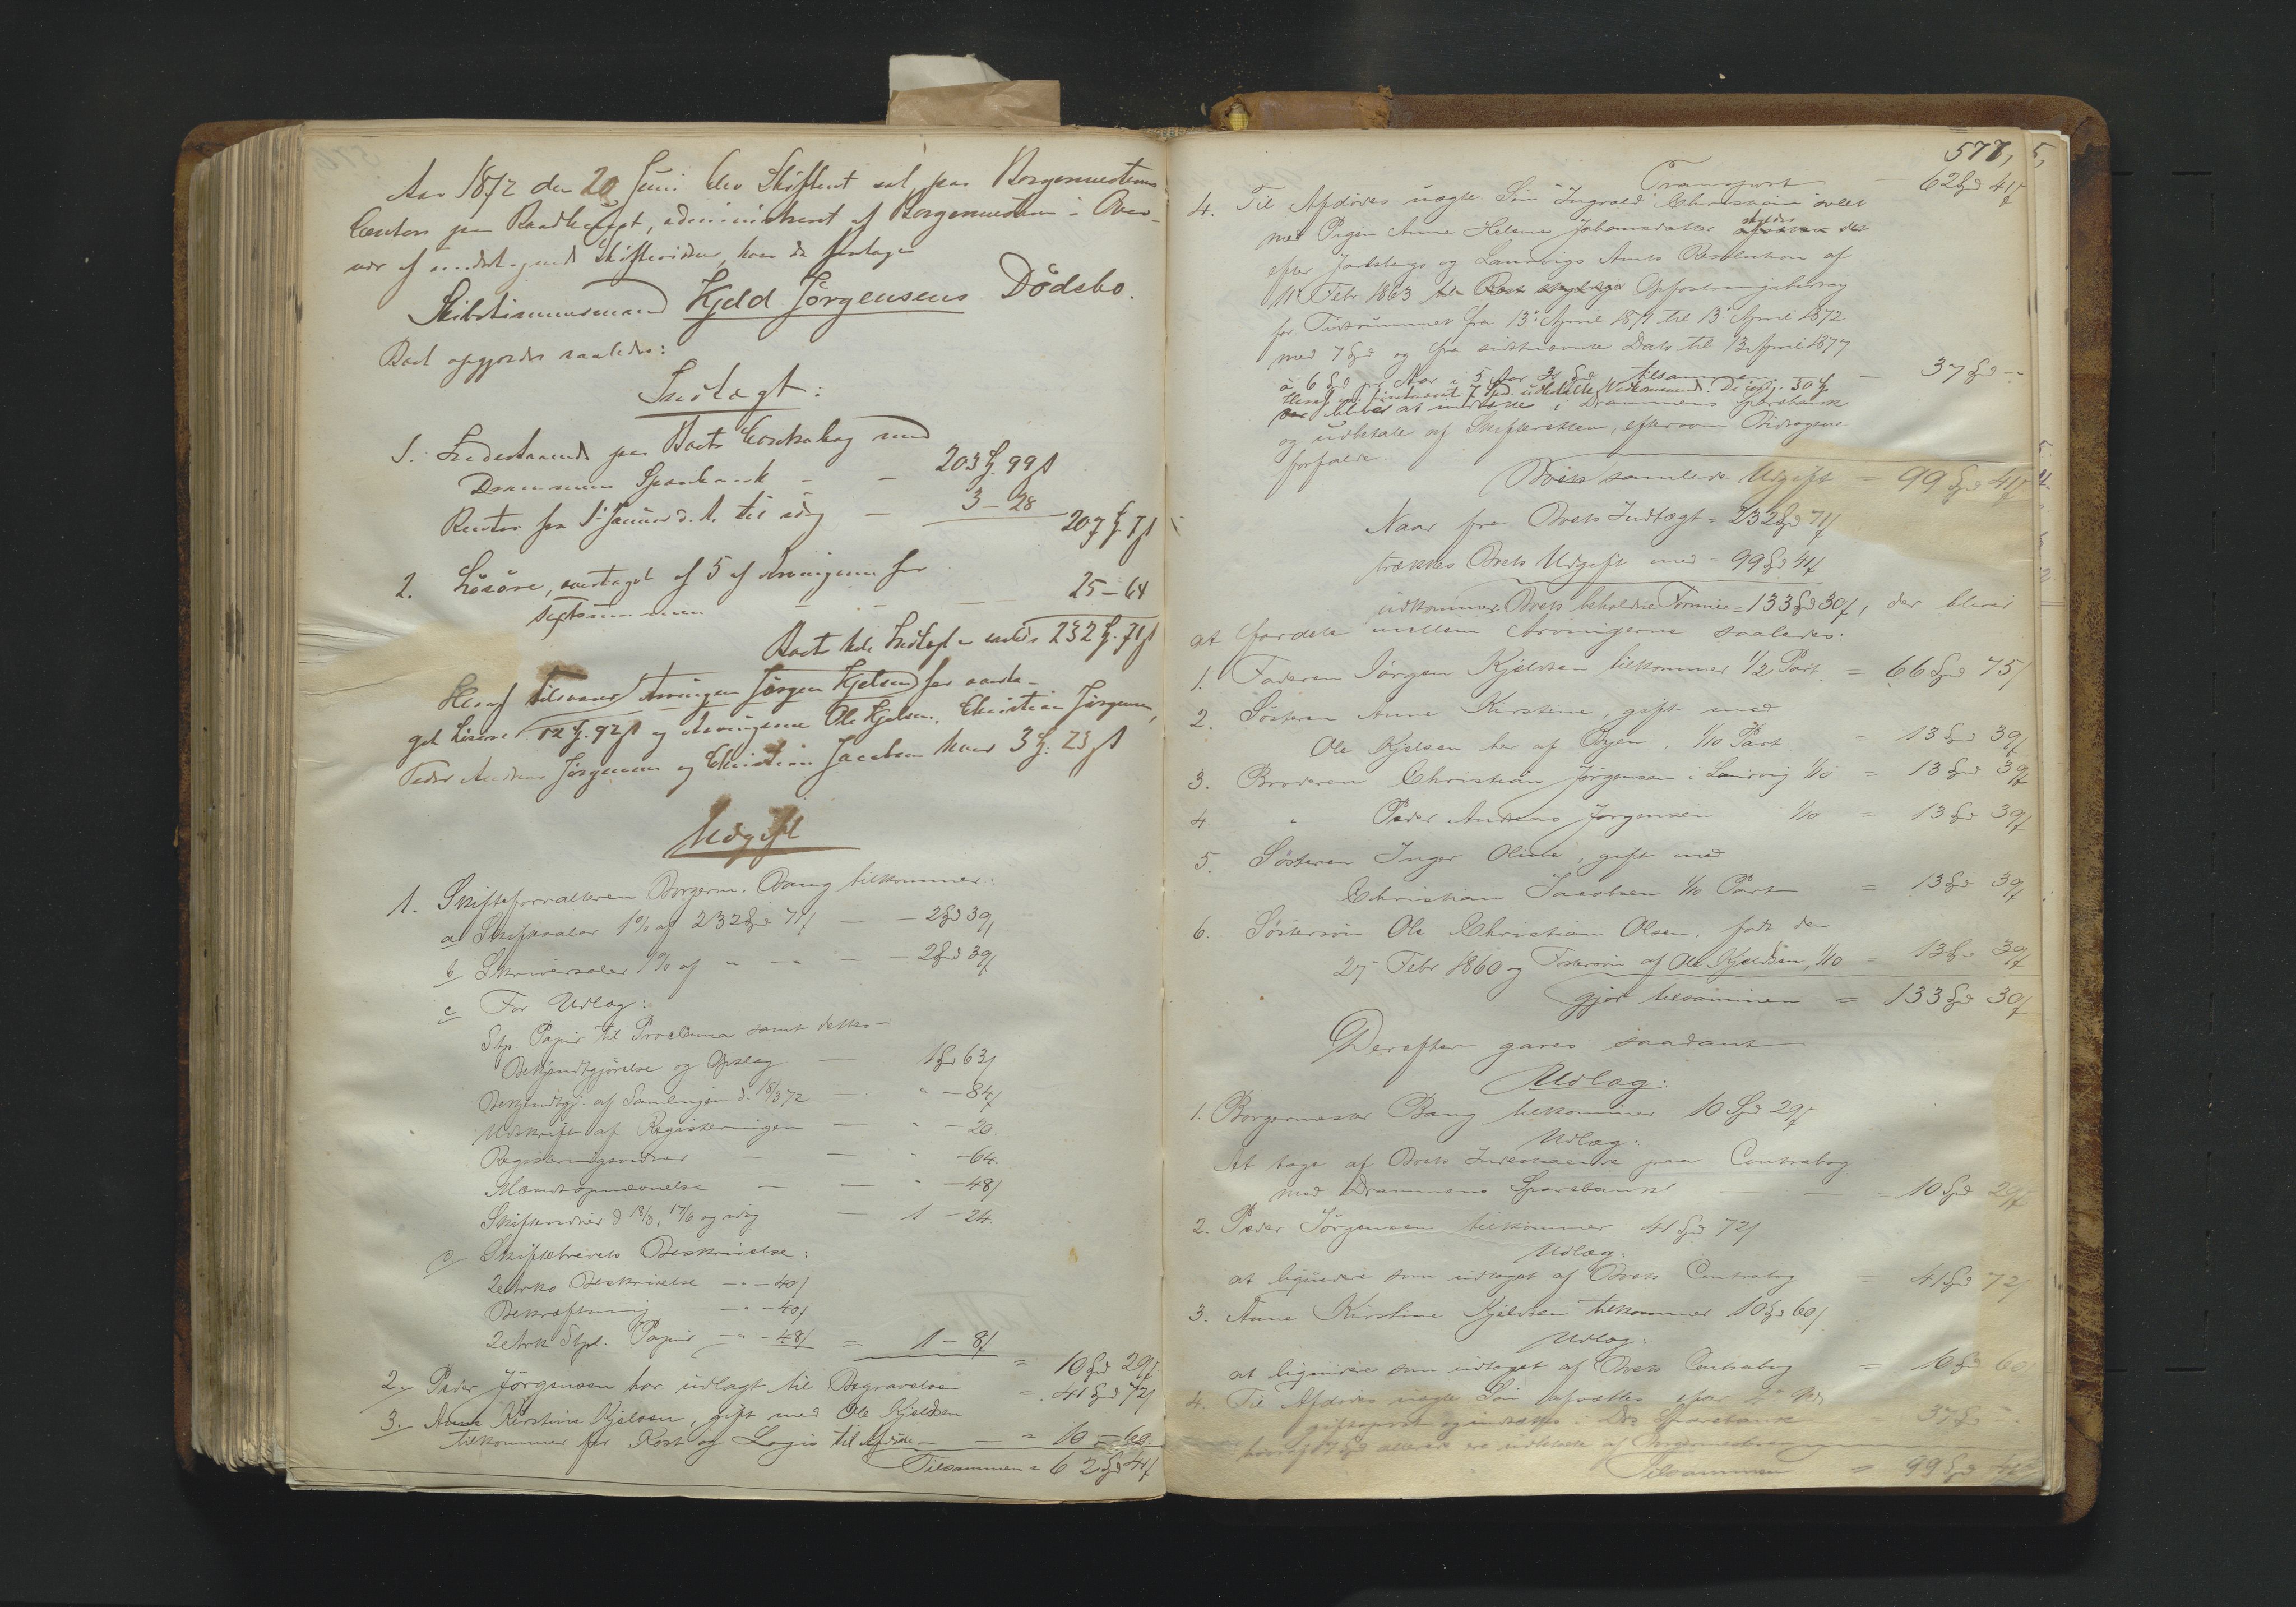 Aar 1872 den 20 Juni blev Skifteret sat paa Borgermesterens
Contor paa Raadhuset, administreret af Borgermesteren i Over-
vær af undertegnede Skiftevidner, hvor da foretoges
Skibstimmermand Kjeld Jørgensens Dødsbo.
Boet opgjordes saaledes:
Indtægt:
1. Indestaaende paa Boets Contrabog med
Drammens Sparebank - - 203 Spd. 99 s
Renter fra 1. Januar d. A. til idag - 3 - 28
207 Spd 7 s
2. Løsøre, overtaget af 5 af Arvingerne for
25 - 64
Boets hele Indtægt er saaledes 232 Spd. 71 s
Heraf tilsvarer Arvingen Jørgen Kjelsen for overta-
get Løsøre 12 Spd. 92 s og Arvingerne Ole Kjelsen, Christian Jørgensen,
Peder Andreas Jørgensen og Christian Jacobsen hver 3 Spd. 23 s
Udgift
1. Skifteforvalteren Borgerm. Bang tilkommer:
a Skiftesalær 1% af 232 Spd 71 s - - 2 Spd 39 s
b Skriversalær 1% af " - " - - 2 Spd 39 s
c For Udlæg:
Stp. Papir til Proclama samt dettes
Bekjendtgjørelse og Opslag - 1 Spd 63 s
Bekjendtgj. af Samlingen d. 18/3 72 - " - 84 s
Udskrift af Registreringen - " - 20.
Registreringsvidner - - " - 64.
Mændsopnævnelse - - " - 48 s
Skiftevidner d 18/3, 17/6 og idag - 1 - 24.
d Skiftebrevets Beskrivelse:
2 Arks Beskrivelse - " - 40 s
Bekræftning - " - 40 s
2 Ark Stpl. Papir - " - 48 s = 1 - 8 s
= 10 Spd 29 s
2. Peder Jørgensen har udlagt til Begravelsen = 41 Spd 72 s
3. Anne Kirstine Kjelsen, gift med Ole Kjeldsen
tilkommer for Kost og Logis til Afdøde - - " 10 - 60.
Tilsammen = 62 Spd 41 s
577,
Transport - 62 Spd 41 s
4. Til Afdødes uægte Søn Ingvald Christian avlet
med Pigen Anne Helene Johannesdatter skyldes det
efter Jarlsbergs og Laurvigs Amts Resolution af
11 Febr 1863 Opfostringsbidrag
for Tidsrummet fra 13. April 1871 til 13. April 1872
med 7 Spd og fra sidstnævnte Dato til 13 April 1877
à 6 Spd pr Aar i 5 Aar 30 Spd tilsammen - 37 Spd - "
Heraf 7 Spd. udbetalte Vedkommende. De øvrige 30 Spd.
bliver at indsætte i Drammens Sparebank
og udbetale af Skifteretten, eftersom Bidragene
forfalde.
Boets samlede Udgift = 99 Spd 41 s
Naar fra Boets Indtægt = 232 Spd 71 s
trækkes Boets Udgift med = 99 Spd 41 s
udkommer Boets beholdne Formue = 133 Spd 30 s, der bliver
at fordele mellem Arvingerne saaledes:
1. Faderen Jørgen Kjeldsen tilkommer 1/2 Part = 66 Spd 75 s
2. Søsteren Anne Kirstine, gift med
Ole Kjelsen her af Byen, 1/10 Part = 13 Spd 39 s
3. Broderen Christian Jørgensen i Laurvig 1/10 = 13 Spd 39 s
4. " Peder Andreas Jørgensen 1/10 = 13 Spd 39 s
5. Søsteren Inger Oline, gift med
Christian Jacobsen 1/10 Part = 13 Spd 39 s
6. Søstersøn Ole Christian Olsen, født den
27 Febr 1860 og Fostersøn af Ole Kjeldsen, 1/10 = 13 Spd 39 s
gjør tilsammen = 133 Spd 30 s
Derefter gaves saadant
Udlæg:
1. Borgermester Bang tilkommer 10 Spd 29 s
Udlæg:
At tage af Boets Indestaaende paa Contrabog
med Drammens Sparebank - - = 10 Spd 29 s
2. Peder Jørgensen tilkommer 41 Spd 72 s
Udlæg:
at ligeledes som udtaget af Boets Contrabog = 41 Spd 72 s
3. Anne Kirstine Kjeldsen tilkommer 10 Spd 60 s
Udlæg:
at ligeledes som udtaget af Boets Contrabog = 10 Spd 60 s
4. Til Afdødes uægte Søn afsættes efter
giftspost og indsættes i Drs Sparebank 37 Spd - "
hvoraf 7 Spd allerede ere udbetalte af Borgermesteren
Tilsammen = 99 Spd 41 s